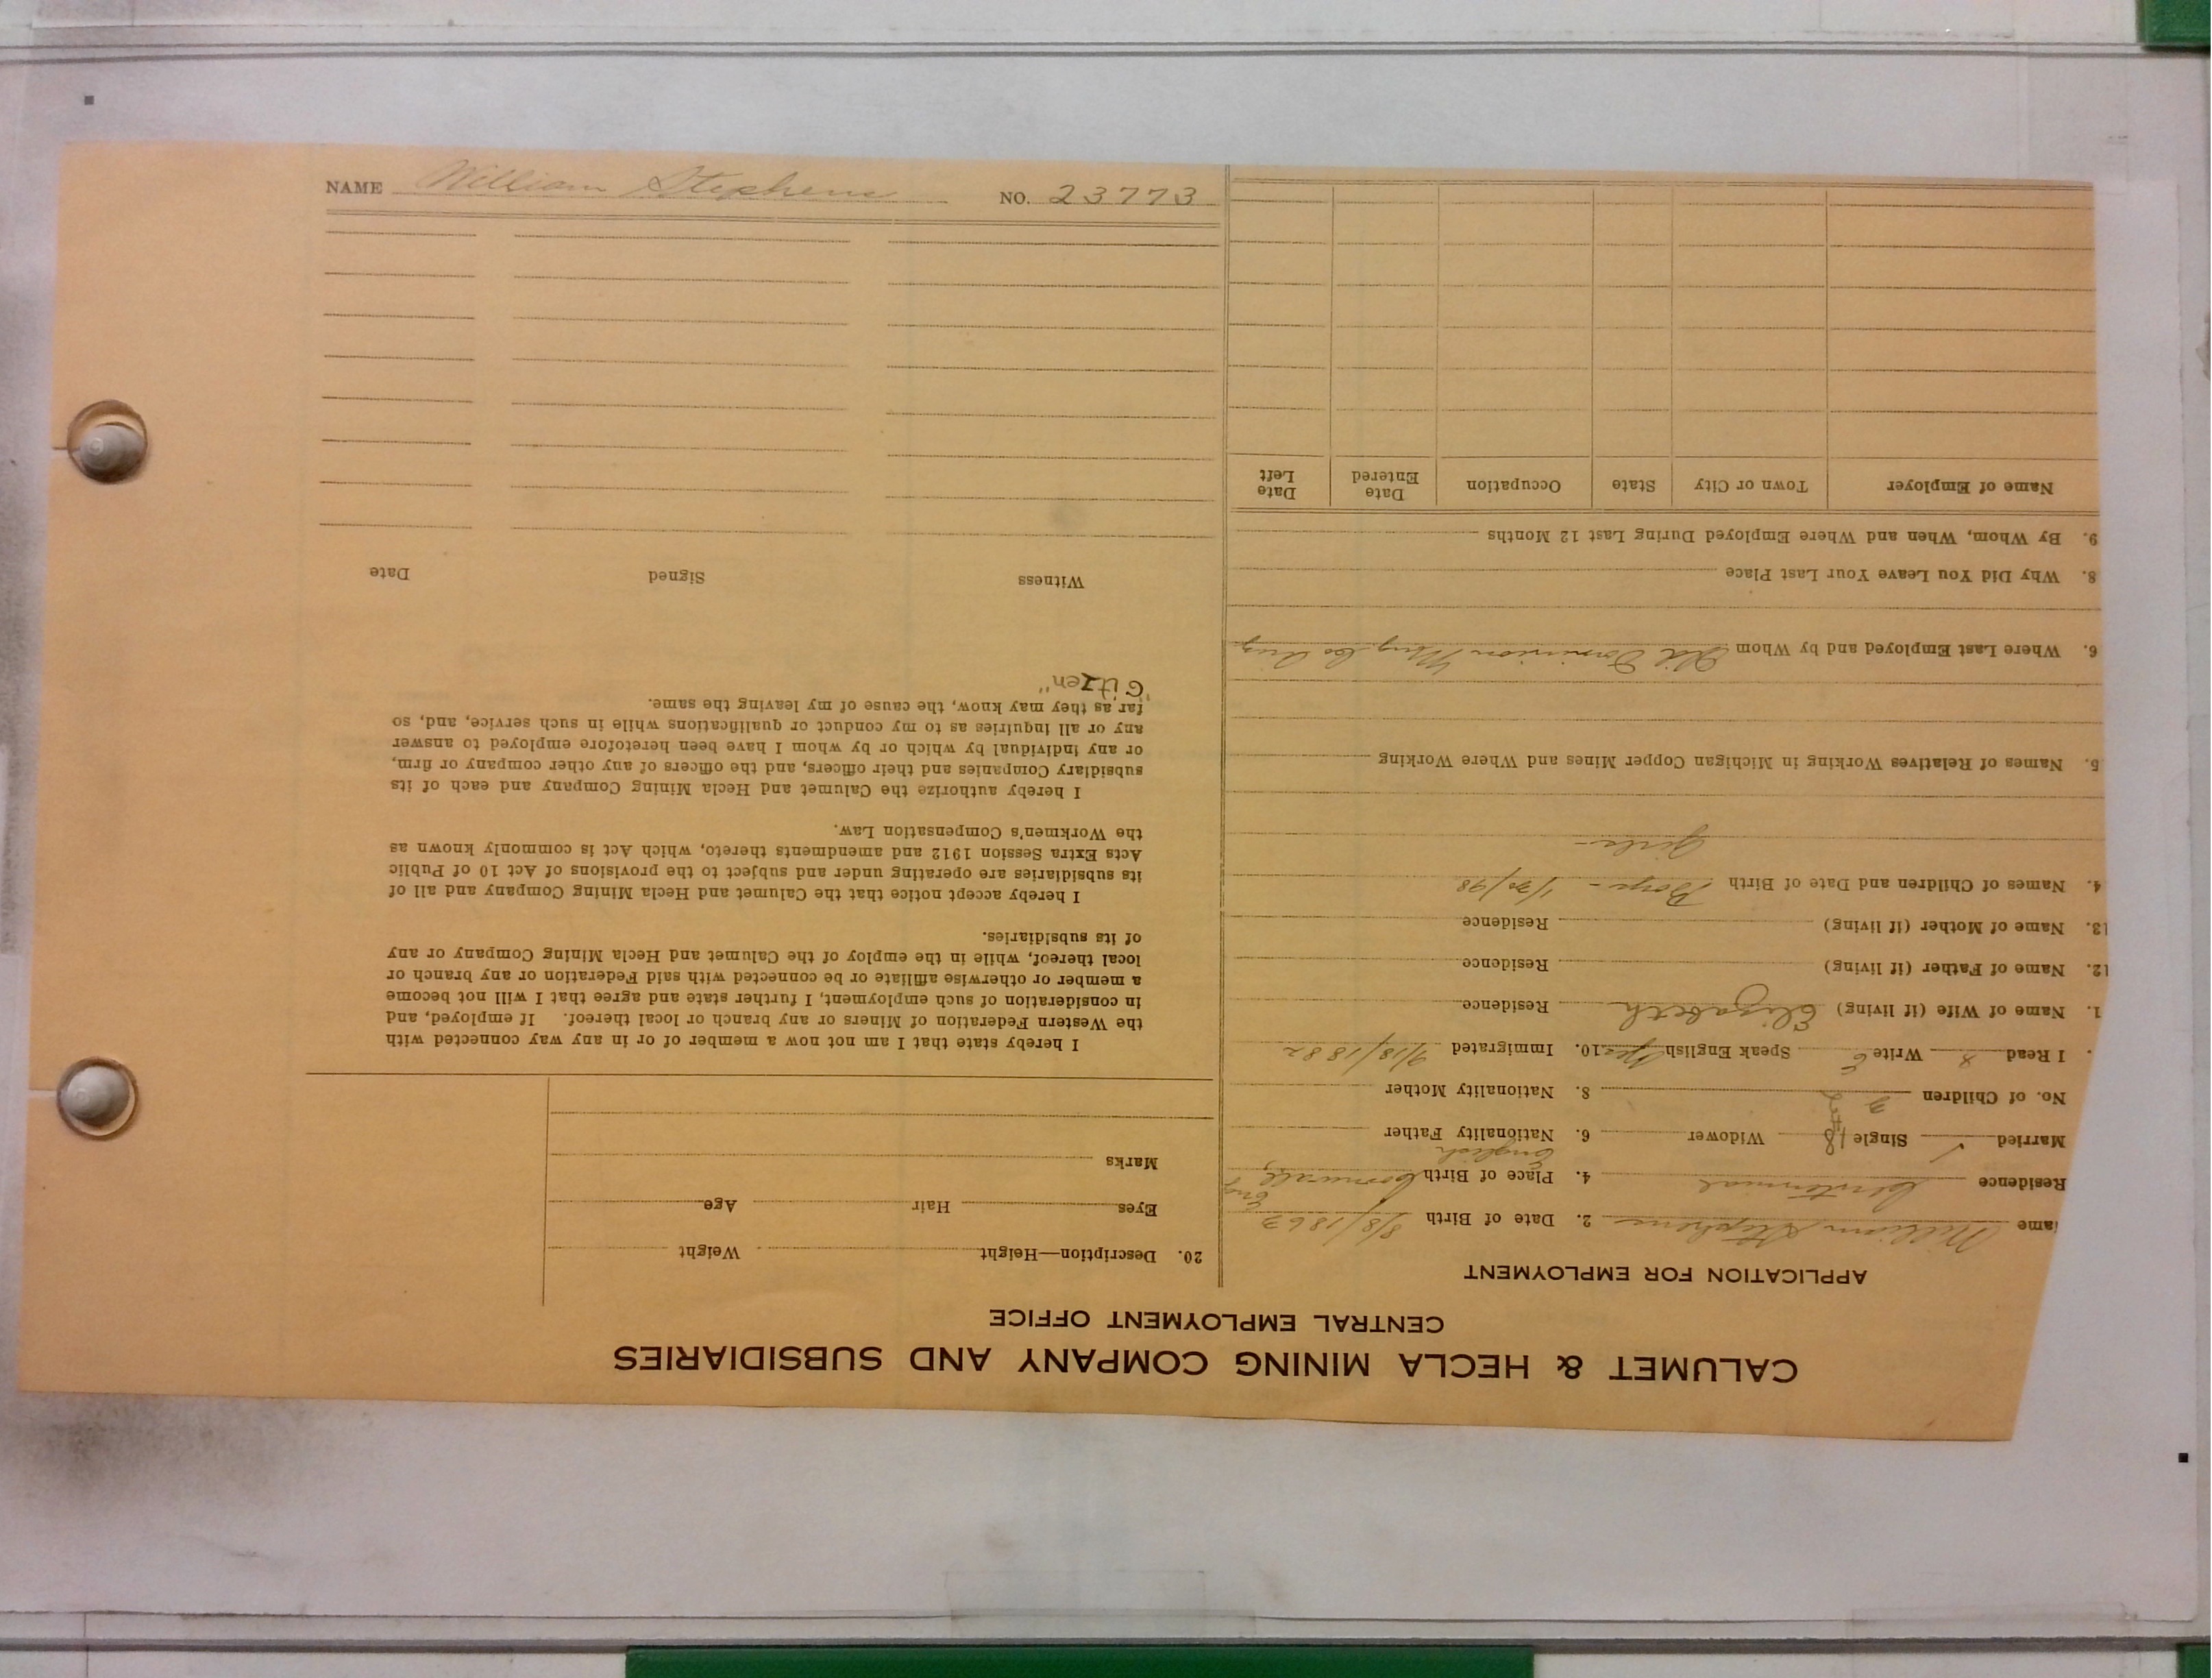 NAME William Stephens NO. 23773
CALUMET & HECLA MINING COMPANY AND SUBSIDIARIES
CENTRAL EMPLOYMENT OFFICE
APPLICATION FOR EMPLOYMENT
ame William Stephens 2. Date of Birth 8/8/1863
Residence Centennial 4. Place of Birth Cornwall Eng
English
Married ✓ Single Widower 6. Nationality Father
No. of Children 2 8. Nationality Mother
. I Read Write E Speak English yes 10. Immigrated 9/18/1882
1. Name of Wife (if living) Elizabeth Residence
12. Name of Father (if living) Residence
13. Name of Mother (if living) Residence
4. Names of Children and Date of Birth Boys - 1/30/98
Girls -
5. Names of Relatives Working in Michigan Copper Mines and Where Working
6. Where Last Employed and by Whom Old Dominion Mng. Co
8. Why Did You Leave Your Last Place
9. By Whom, When and Where Employed During Last 12 Months
Name of Employer Town or City State Occupation Date Entered Date Left
20. Description—Height Weight
Eyes Hair Age
Marks
I hereby state that I am not now a member of or in any way connected with
the Western Federation of Miners or any branch or local thereof. If employed, and
in consideration of such employment, I further state and agree that I will not become
a member or otherwise affiliate or be connected with said Federation or any branch or
local thereof, while in the employ of the Calumet and Hecla Mining Company or any
of its subsidiaries.
I hereby accept notice that the Calumet and Hecla Mining Company and all of
its subsidiaries are operating under and subject to the provisions of Act 10 of Public
Acts Extra Session 1912 and amendments thereto, which Act is commonly known as
the Workmen's Compensation Law.
I hereby authorize the Calumet and Hecla Mining Company and each of its
subsidiary Companies and their officers, and the officers of any other company or firm,
or any individual by which or by whom I have been heretofore employed to answer
any or all inquiries as to my conduct or qualifications while in such service, and, so
far as they may know, the cause of my leaving the same.
"Citzen"
Witness Signed Date